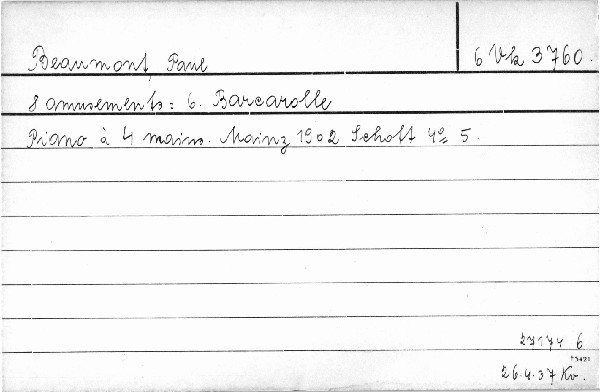 Beaumont, Paul
6 Vk 3760.
8 amusements: 6. Barcarolle
Piano à 4 mains. Mainz 1902 Schott 4º 5.
27174 6
26.4.37 Kv.